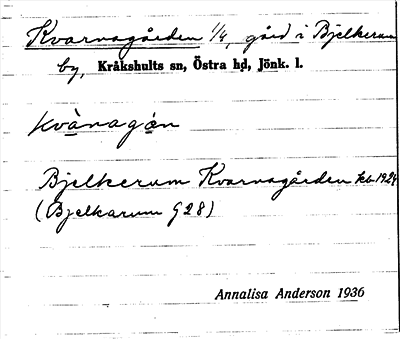 Kvarnagården 1/4, gård i Bjelkerum
by, Kråkshults sn, Östra hd, Jönk. l.
kvànagán
Bjelkerum Kvarnagården kb 1924
(Bjelkarum G28)
Annalisa Anderson 1936